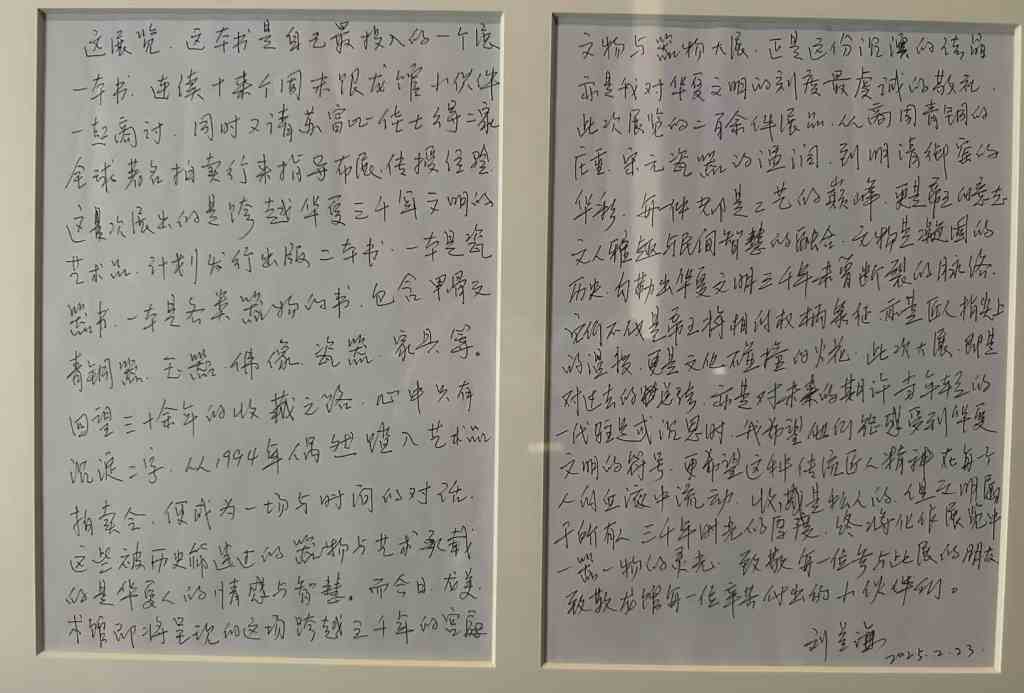 这展览、这本书是自己最投入的一个展
一本书. 连续十来个周末跟龙馆小伙伴
一起商讨. 同时又请苏富比佳士得二家
全球著名拍卖行来指导布展、传授经验.
这次展出的是跨越华夏三千年文明的
艺术品. 计划发行出版二本书. 一本是瓷
器书. 一本是各类器物的书. 包含甲骨文
青铜器. 玉器 佛像. 瓷器. 家具等。
回望三十余年的收藏之路. 心中只有
沉淀二字. 从1994年偶然踏入艺术品
拍卖会. 便成为一场与时间的对话.
这些被历史筛选过的器物与艺术承载
的是华夏人的情感与智慧。而今日 龙美
术馆即将呈现的这场跨越三千年的宫廷
文物与器物大展. 正是这份沉淀的结晶
亦是我对华夏文明的刻度最虔诚的敬礼.
此次展览的二百余件展品. 从商周青铜的
庄重. 宋元瓷器的温润. 到明清御窑的
华彩. 每一件都是工艺的巅峰. 更是帝王的意志
文人雅趣与民间智慧的融合. 文物是凝固的
历史. 勾勒出华夏文明三千年未曾断裂的脉络.
它们不仅是帝王将相的权柄象征 亦是匠人指尖上
的温度. 更是文化碰撞的火花. 此次大展. 即是
对过去的总结. 亦是对未来的期许. 当年轻的
一代驻足或沉思时. 我希望他们能感受到华夏
文明的符号. 更希望这种传统匠人精神在每个
人的血液中流动. 收藏是私人的. 但文明属
于所有人 三千年时光的厚度. 终将化作展览中
一器一物的灵光. 致敬每一位参与此展的朋友
致敬龙馆每一位辛苦付出的小伙伴们。
2025.2.23.